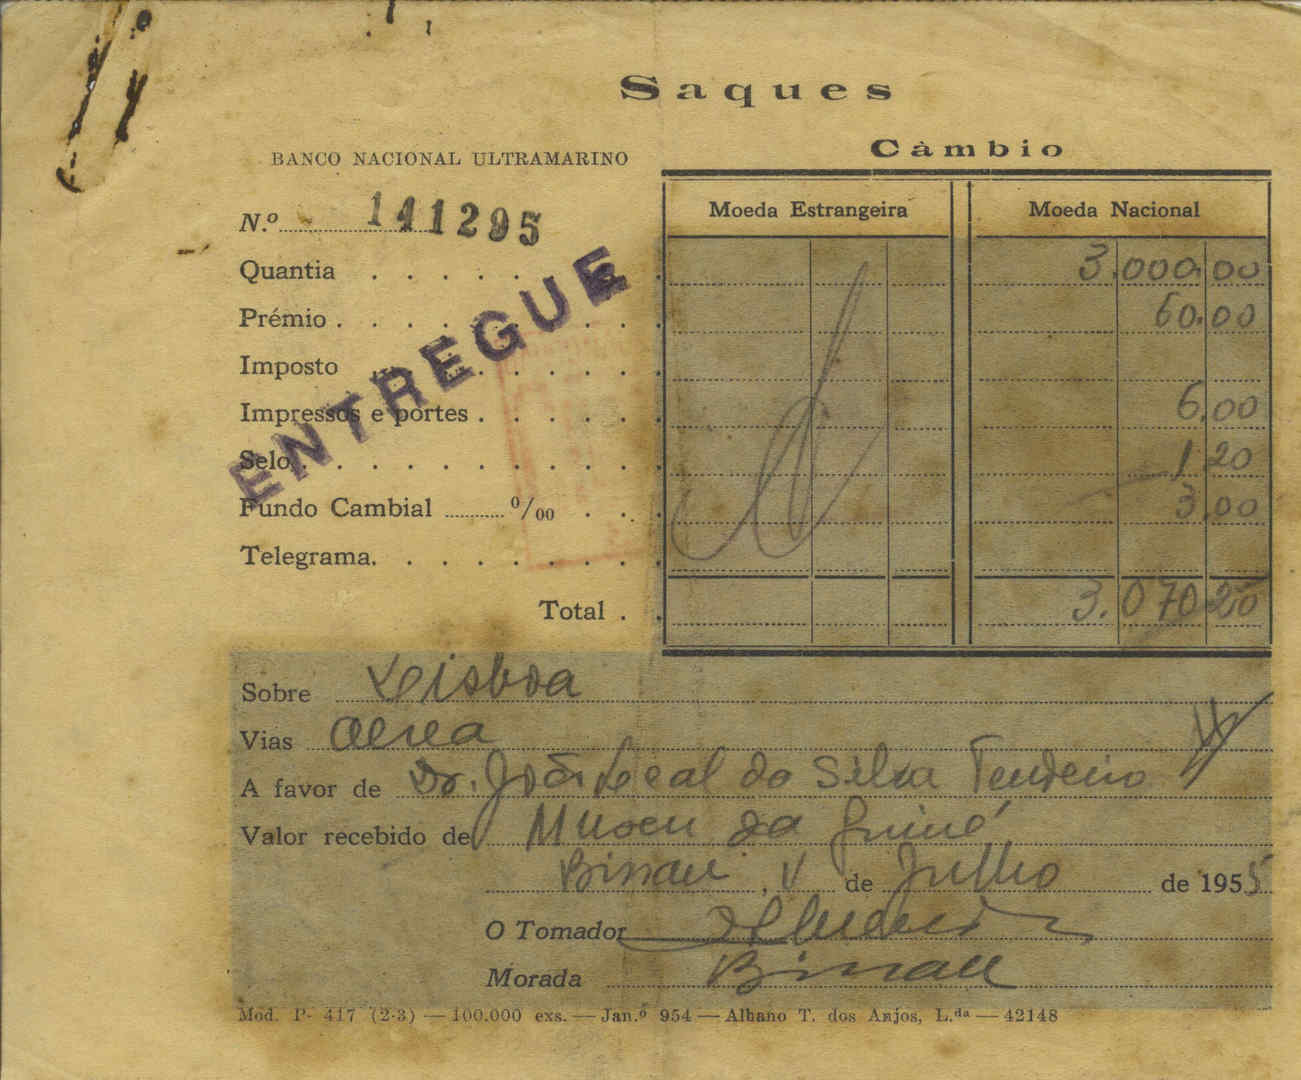 Saques
Câmbio
BANCO NACIONAL ULTRAMARINO
Moeda Estrangeira Moeda Nacional
N.º 141295
Quantia 3.000,00
Prémio 60,00
Imposto
Impressos e portes 6,00
Selo 1,20
Fundo Cambial 0/00 3,00
Telegrama
Total 3.070,20
ENTREGUE
Sobre Lisboa
Vias aerea
A favor de Dr. João Leal da Silva Tendeiro
Valor recebido de Museu da Guiné
Bissau, de Julho de 1955
O Tomador
Morada Bissau
Mod. P- 417 (2-3) — 100.000 exs. — Jan.º 954 — Albano T. dos Anjos, L.da — 42148